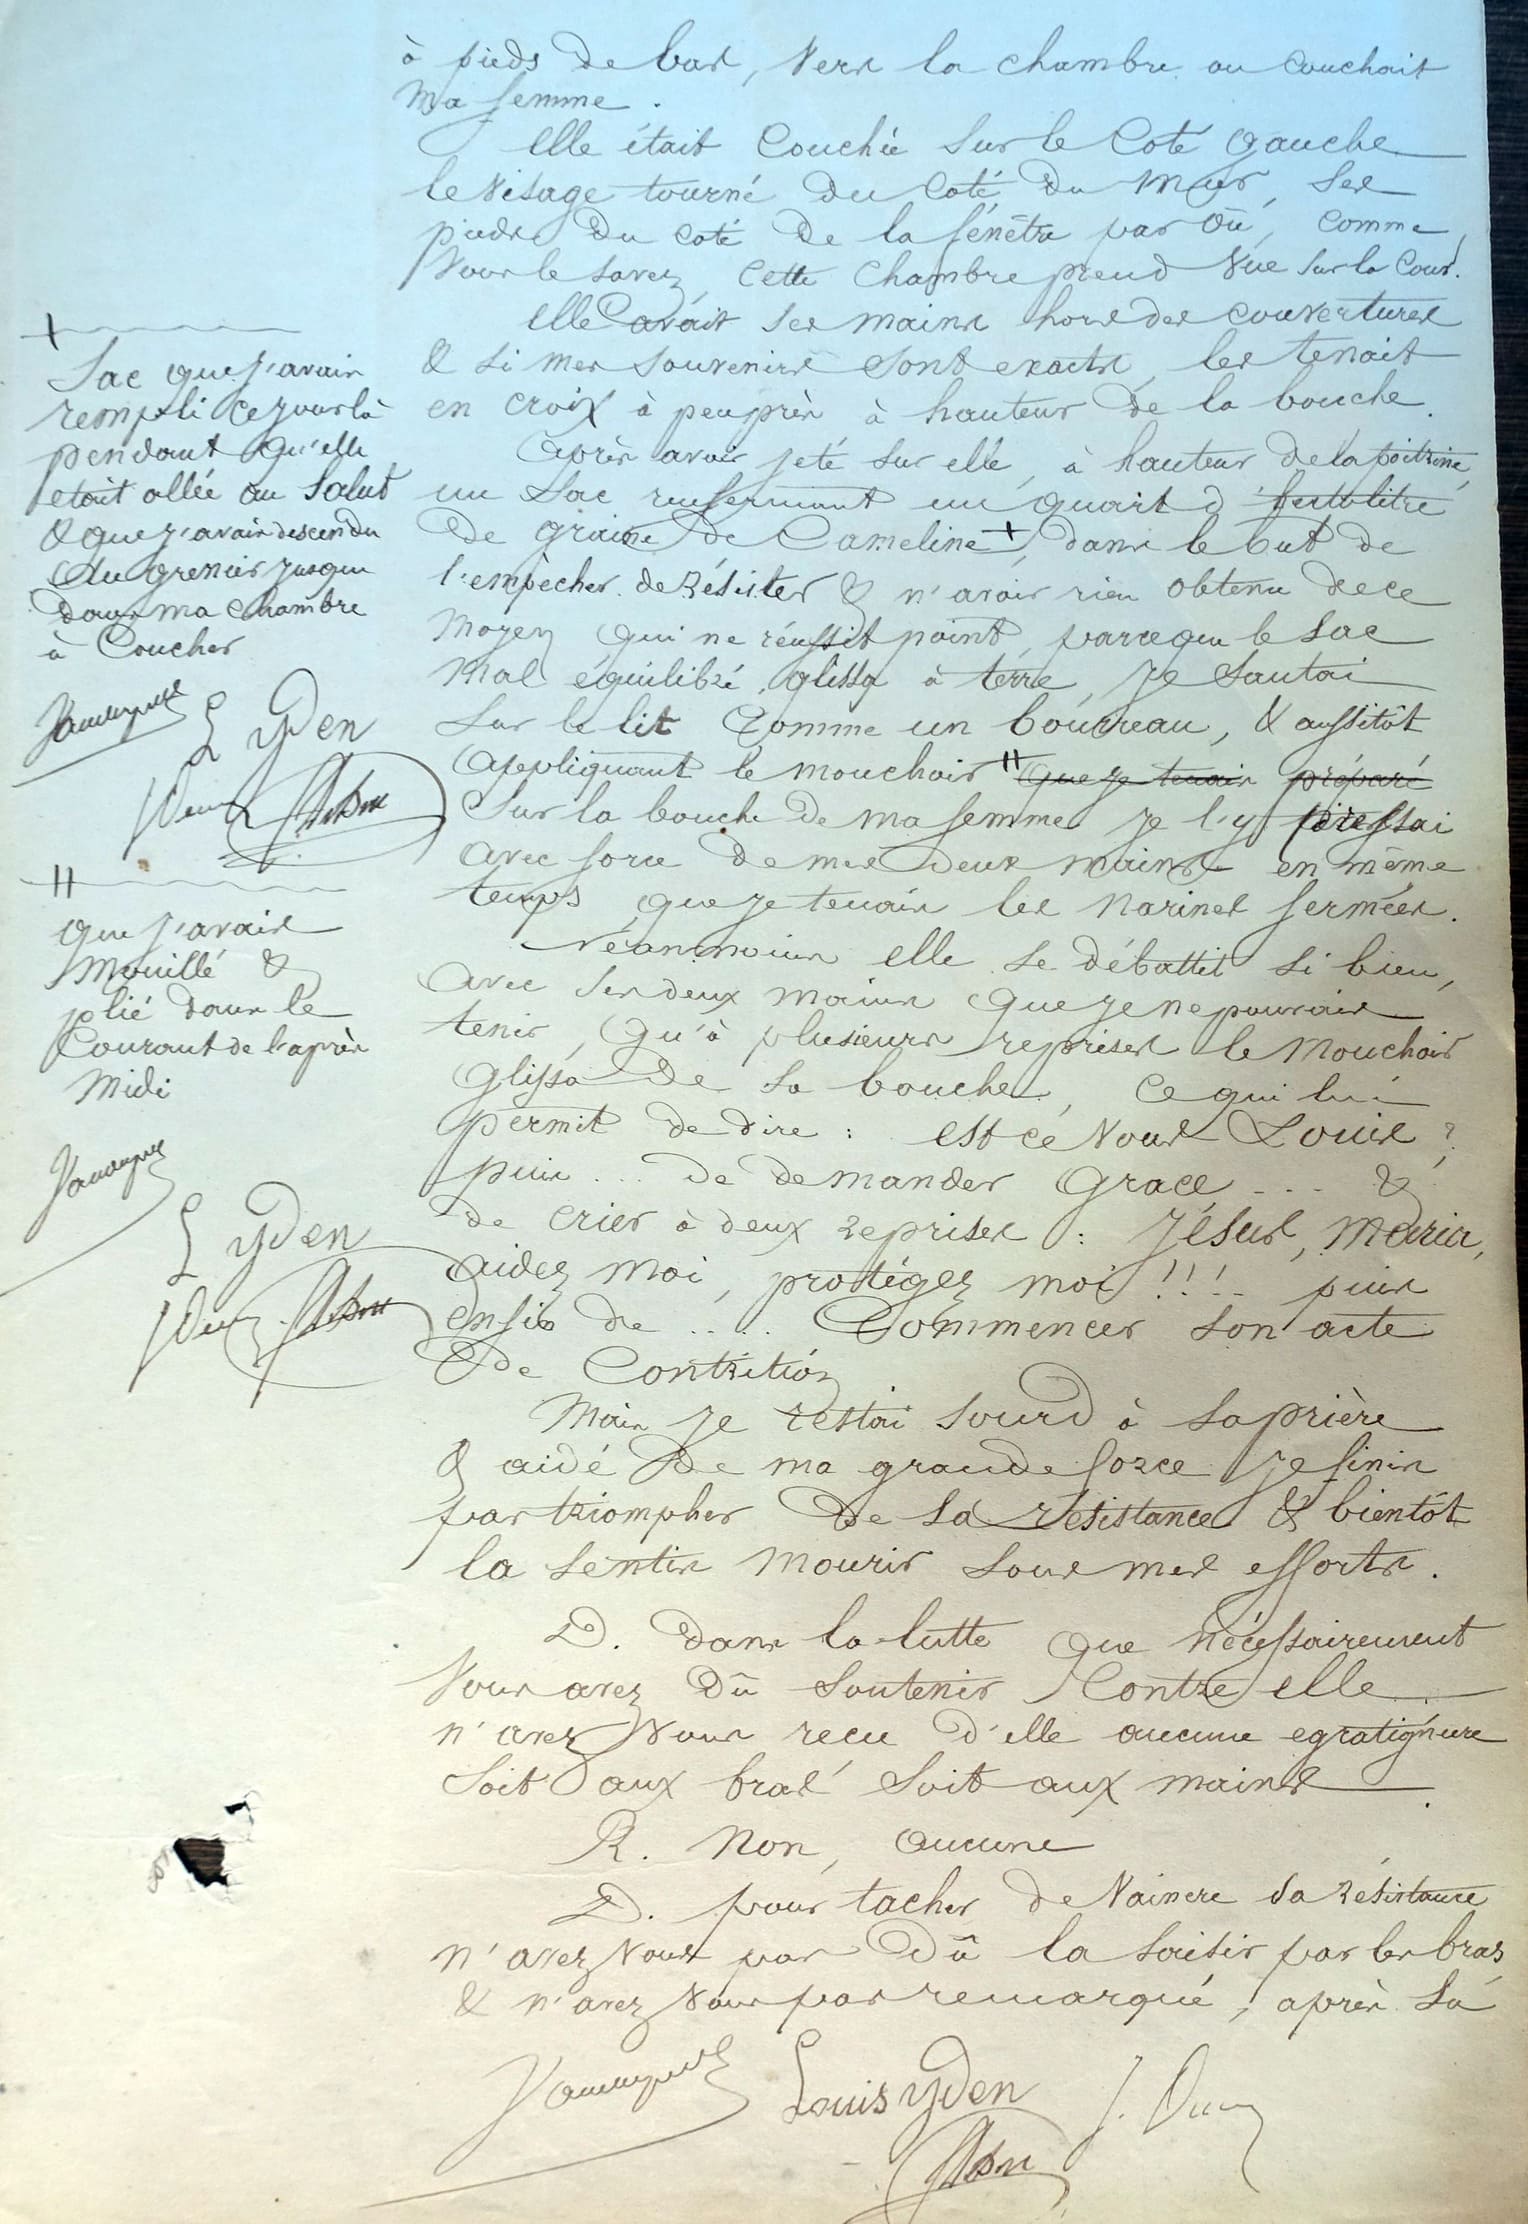 à pieds de bas, vers la chambre ou couchait
ma femme.
elle était couchée sur le coté gauche
le visage tourné du coté du mur, ses
pieds du coté de la fénêtre par où, comme
vous le savez, cette chambre prend vue sur la cour.
elle avait ses mains hors des couvertures
& si mes souvenirs sont exacts, les tenait
en croix à peu près à hauteur de la bouche.
après avoir jeté sur elle, à hauteur de la poitrine,
un sac renfermant un quart d'hectolitre
de graine de Cameline +, dans le but de
l'empêcher de résister & n'avoir rien obtenu de ce
moyen qui ne réussit point, parce que le sac
mal équilibré, glissa à terre, je sautai
sur le lit comme un bourreau, & aussitôt
appliquant le mouchoir " que je tenais préparé
sur la bouche de ma femme je l'y pressai
avec force de mes deux mains en même
temps que je tenais les narines fermées.
Néanmoins elle se débattit si bien,
avec ses deux mains que je ne pouvais
tenir, qu'à plusieurs reprises le mouchoir
glissa de sa bouche, ce qui lui
permit de dire : est ce vous Louis ?
puis ... de demander grace ... &
de crier à deux reprises : Jésus, Maria,
aidez moi, protégez moi !!! puis
enfin de .... commencer son acte
de contrition
Mais je restai sourd à sa prière
& aidé de ma grande force je finis
par triompher de sa résistance & bientôt
la sentis mourir sous mes efforts.
D. dans la lutte que nécessairement
vous avez dû soutenir contre elle
n'avez vous recu d'elle aucune egratignure
soit aux bras soit aux mains.
R. Non, aucune
D. pour tacher de vaincre sa résistance
n'avez vous pas dû la saisir par les bras
& n'avez vous pas remarqué, après sa
Louis yden
+
Sac que j'avais
rempli ce jour là
pendant qu'elle
etait allée au Salut
& que j'avais descendu
du grenier jusque
dans ma chambre
à coucher
L yden
"
que j'avais
mouillé &
plié dans le
courant de l'après
midi
L yden